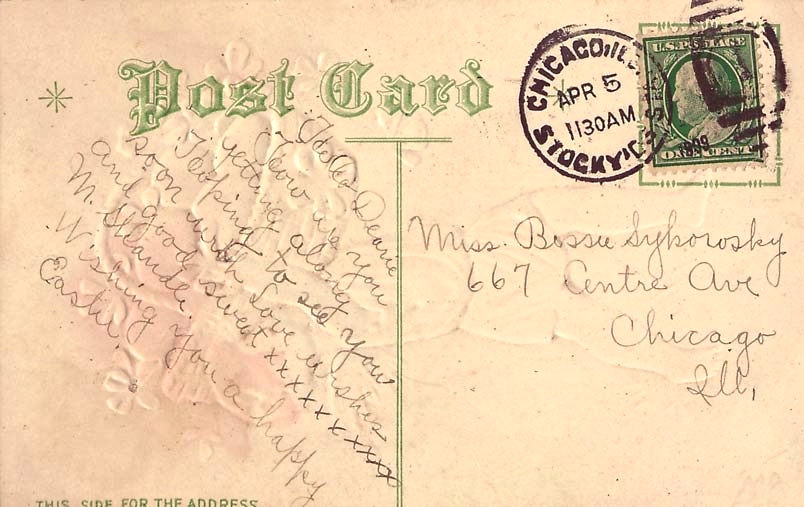 Post Card
CHICAGO, ILL.
APR 5
1130 AM
1909
STOCKY'DS STA
U.S. POSTAGE
ONE CENT
Hello Dearie
How are you
getting along
Hoping to see you
soon with love wishes
and good sweet xxxxxxxxxx
M.
Wishing you a happy
Easter.
Miss. Bessie Sykorosky
667 Centre Ave
Chicago
Ill,
THIS SIDE FOR THE ADDRESS